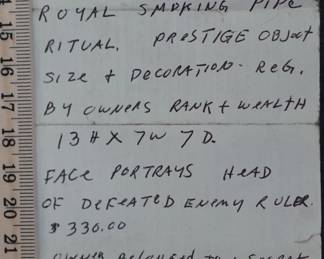 ROYAL SMOKING PIPE
RITUAL. PRESTIGE OBJECT
SIZE + DECORATION. REG.
BY OWNERS RANK + WEALTH
13 H X 7 W 7 D.
FACE PORTRAYS HEAD
OF DEFEATED ENEMY RULER.
$ 330.00
OWNER BELONGED TO
15
16
17
18
19
20
21